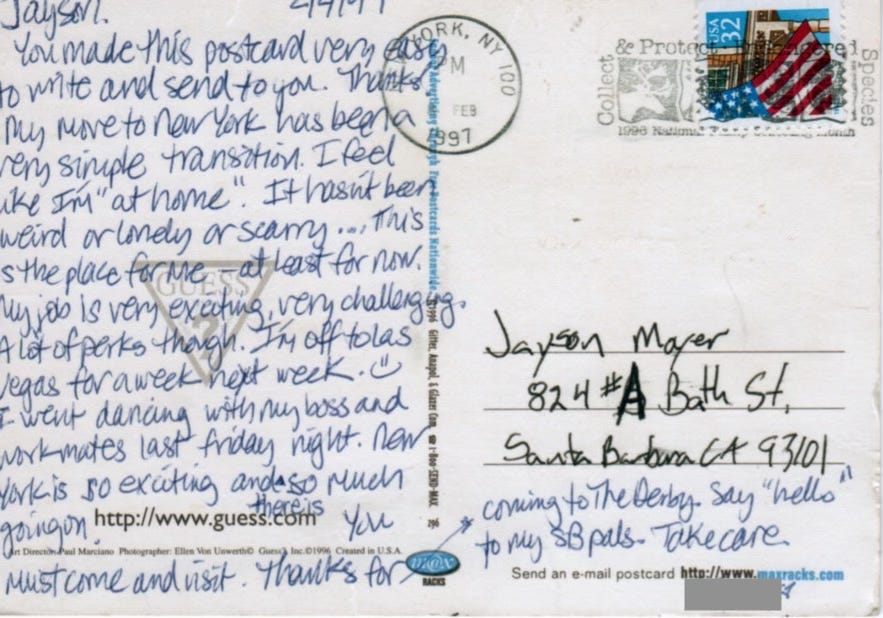 Jayson.
You made this postcard very easy
to write and send to you. Thanks
My move to New York has been a
very simple transition. I feel
like I'm "at home". It hasn't been
weird or lonely or scarry... This
is the place for me - at least for now.
My job is very exciting, very challenging.
A lot of perks though. I'm off to Las
Vegas for a week next week. ☺
I went dancing with my boss and
workmates last friday night. New
York is so exciting and so much
there is
going on. You
must come and visit. Thanks for
coming to The Derby. Say "hello"
to my SB pals. Take care.
GUESS
?
http://www.guess.com
Art Director: Paul Marciano Photographer: Ellen Von Unwerth © Guess, Inc. ©1996 Created in U.S.A.
Advertising through Free Postcards Nationwide.
©1996
1-800-SEND-MAX
296
m@x
RACKS
YORK, NY 100
PM
FEB
1997
Collect & Protect Endangered Species
1996 National Stamp Collecting Month
USA 32
Jayson Moyer
824 #A Bath St,
Santa Barbara CA 93101
Send an e-mail postcard http://www.maxracks.com